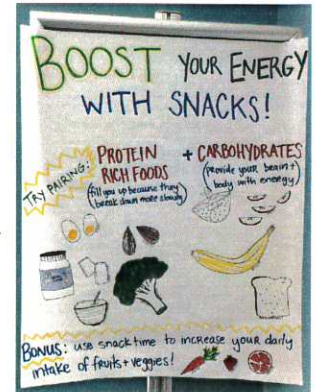 BOOST YOUR ENERGY
WITH SNACKS!
TRY PAIRING:
PROTEIN
RICH FOODS
(fill you up because they
break down more slowly)
+ CARBOHYDRATES
(provide your brain +
body with energy)
BONUS: use snack time to increase your daily
intake of fruits + veggies!